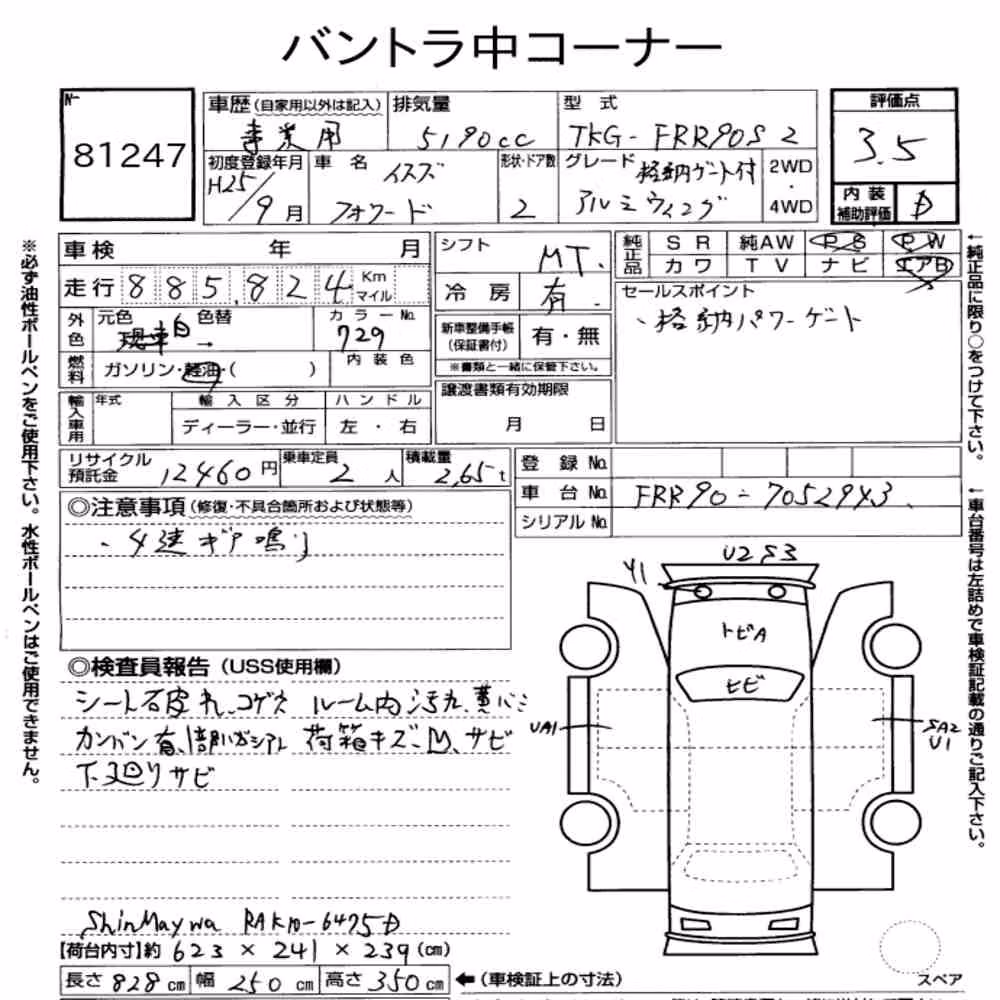 バントラ中コーナー
№
81247
車歴 (自家用以外は記入)
事業用
排気量
5190cc
型式
TKG-FRR90S2
評価点
3.5
初度登録年月
H25/9月
車名
イスズ
フォワード
形状・ドア数
2
グレード
格納ゲート付
アルミウィング
2WD
・
4WD
内装
補助評価
D
車検 年 月
走行 885,824 Km
マイル
シフト
MT.
冷房
有.
純正品
SR 純AW PS PW
カワ TV ナビ エアB
外色
元色 色替
現車白 →
カラー№
729
燃料
ガソリン・軽油・( )
内装色
新車整備手帳
(保証書付)
有・無
※書類と一緒に保管下さい。
セールスポイント
・格納パワーゲート
輸入車用
年式
輸入区分
ディーラー・並行
ハンドル
左・右
譲渡書類有効期限
月 日
リサイクル
預託金
12460円
乗車定員
2人
積載量
2,65t
登録№
車台№ FRR90-7052943
シリアル№
◎注意事項 (修復・不具合箇所および状態等)
・4速ギア鳴り
◎検査員報告 (USS使用欄)
シート破れ、コゲ穴 ルーム内汚れ、
カンバン有、 荷箱キズ、凹、サビ
下廻りサビ
ShinMaywa RAK10-6475D
【荷台内寸】約 623 × 241 × 239 (cm)
長さ 828 cm 幅 250 cm 高さ 350 cm
←(車検証上の寸法)
U2S3
Y1
トビA
ヒビ
UA1
SA2
U1
スペア
※必ず油性ボールペンをご使用下さい。水性ボールペンはご使用できません。
←純正品に限り○をつけて下さい。
←車台番号は左詰めで車検証記載の通りご記入下さい。